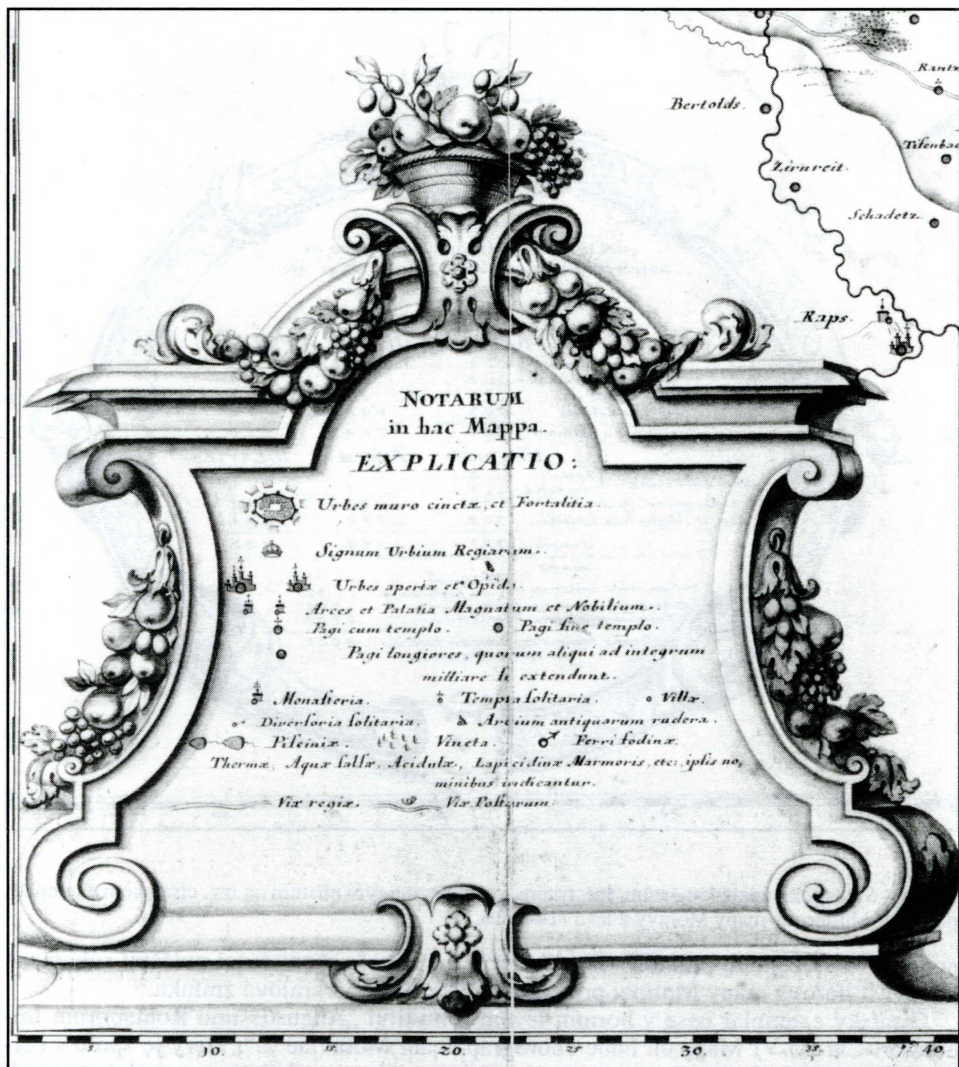 Rantz
Bertolds.
Tisenbac
Zirnreit.
Schadetz.
Raps.
NOTARUM
in hac Mappa.
EXPLICATIO:
Urbes muro cinctæ, et Fortalitia.
Signum Urbium Regiarum.
Urbes apertæ et Opida.
Arces et Palatia Magnatum et Nobilium.
Pagi cum templo. Pagi sine templo.
Pagi longiores, quorum aliqui ad integrum
milliare se extendunt.
Monasteria. Templa solitaria. Villæ.
Diversoria solitaria. Arcium antiquarum rudera.
Pisciniæ. Vineta. Ferri fodinæ.
Thermæ, Aquæ salsæ, Acidulæ, Lapicidinæ Marmoris, etc, ipsis no,
minibus indicantur.
Viæ regiæ. Viæ Postarum.
5. 10. 15. 20. 25 30. 35. 40.